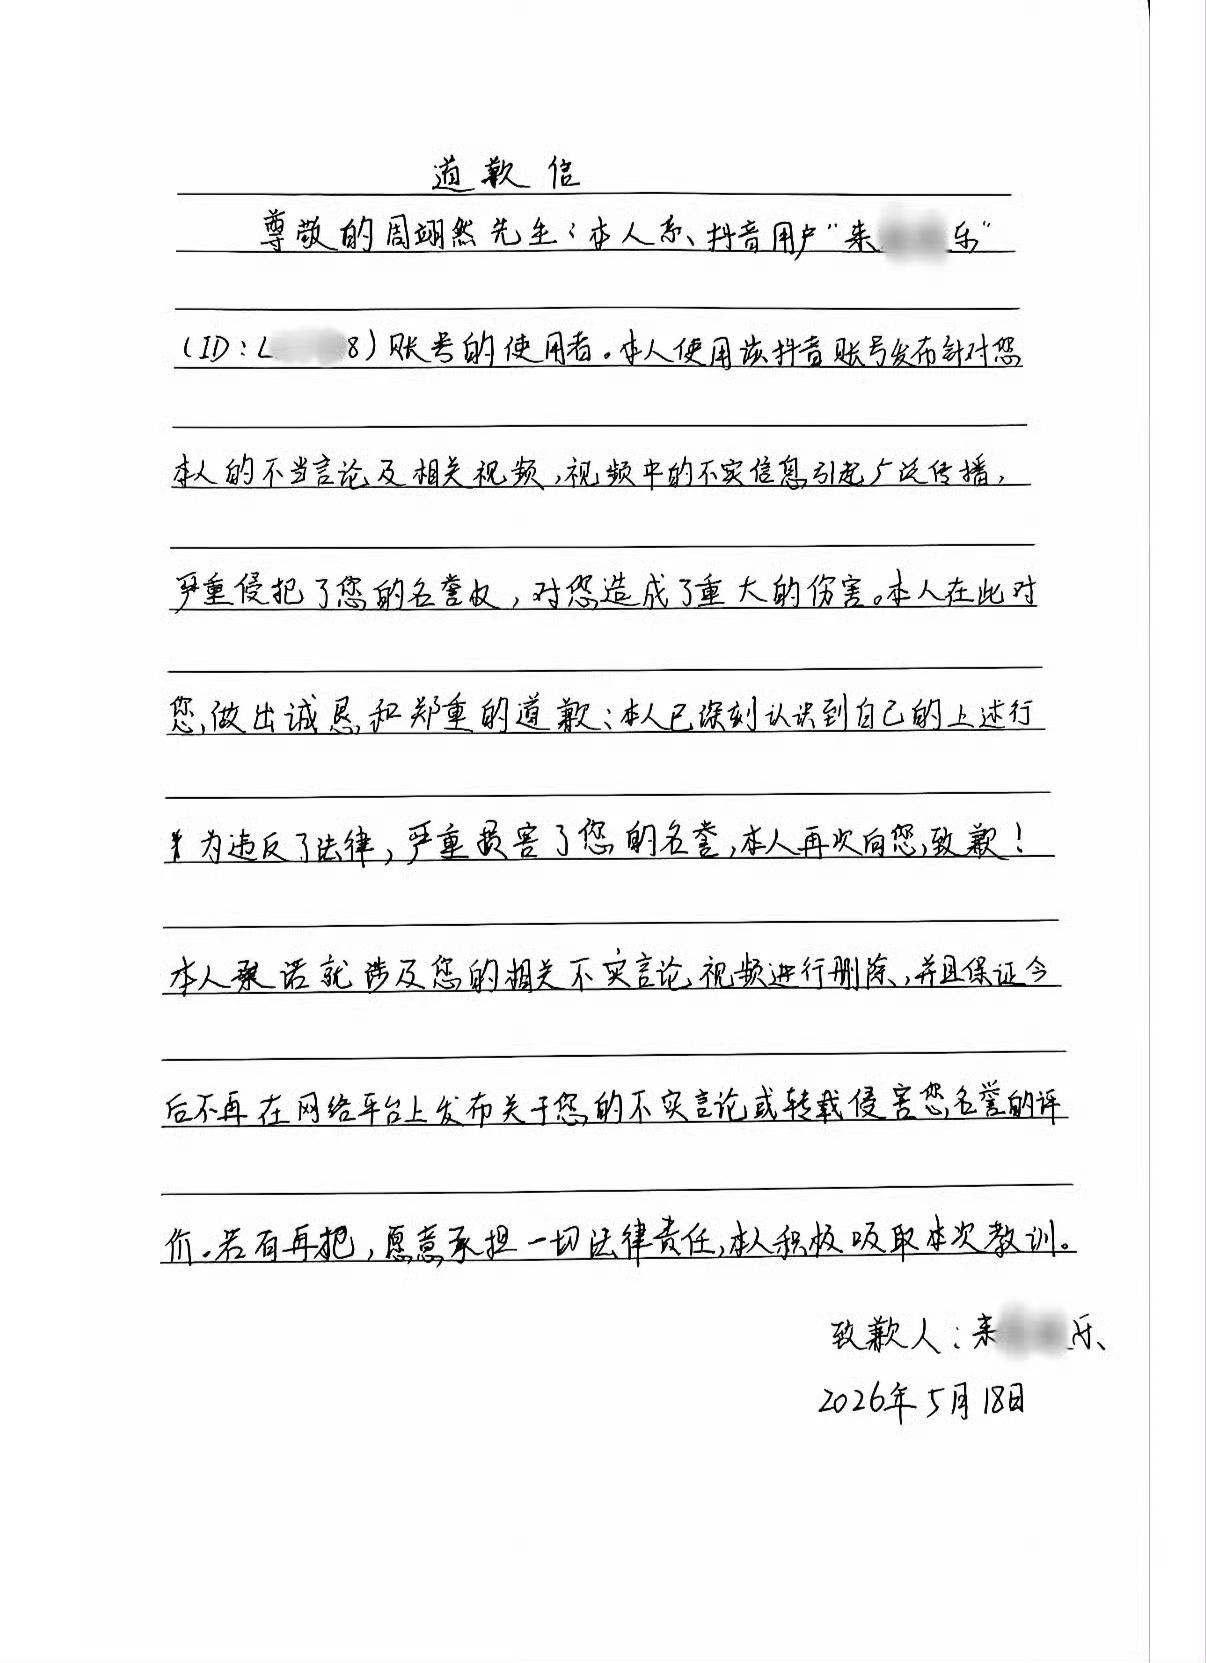 道歉信
尊敬的周翊然先生：本人系、抖音用户“来 乐”
（ID：L 8）账号的使用者。本人使用该抖音账号发布针对您
本人的不当言论及相关视频，视频中的不实信息引起广泛传播，
严重侵犯了您的名誉权，对您造成了重大的伤害。本人在此对
您，做出诚恳和郑重的道歉；本人已深刻认识到自己的上述行
为违反了法律，严重损害了您的名誉，本人再次向您，致歉！
本人承诺就涉及您的相关不实言论，视频进行删除，并且保证今
后不再在网络平台上发布关于您的不实言论或转载侵害您名誉的评
价。若有再犯，愿意承担一切法律责任，本人积极吸取本次教训。
致歉人：来 乐
2026年5月18日